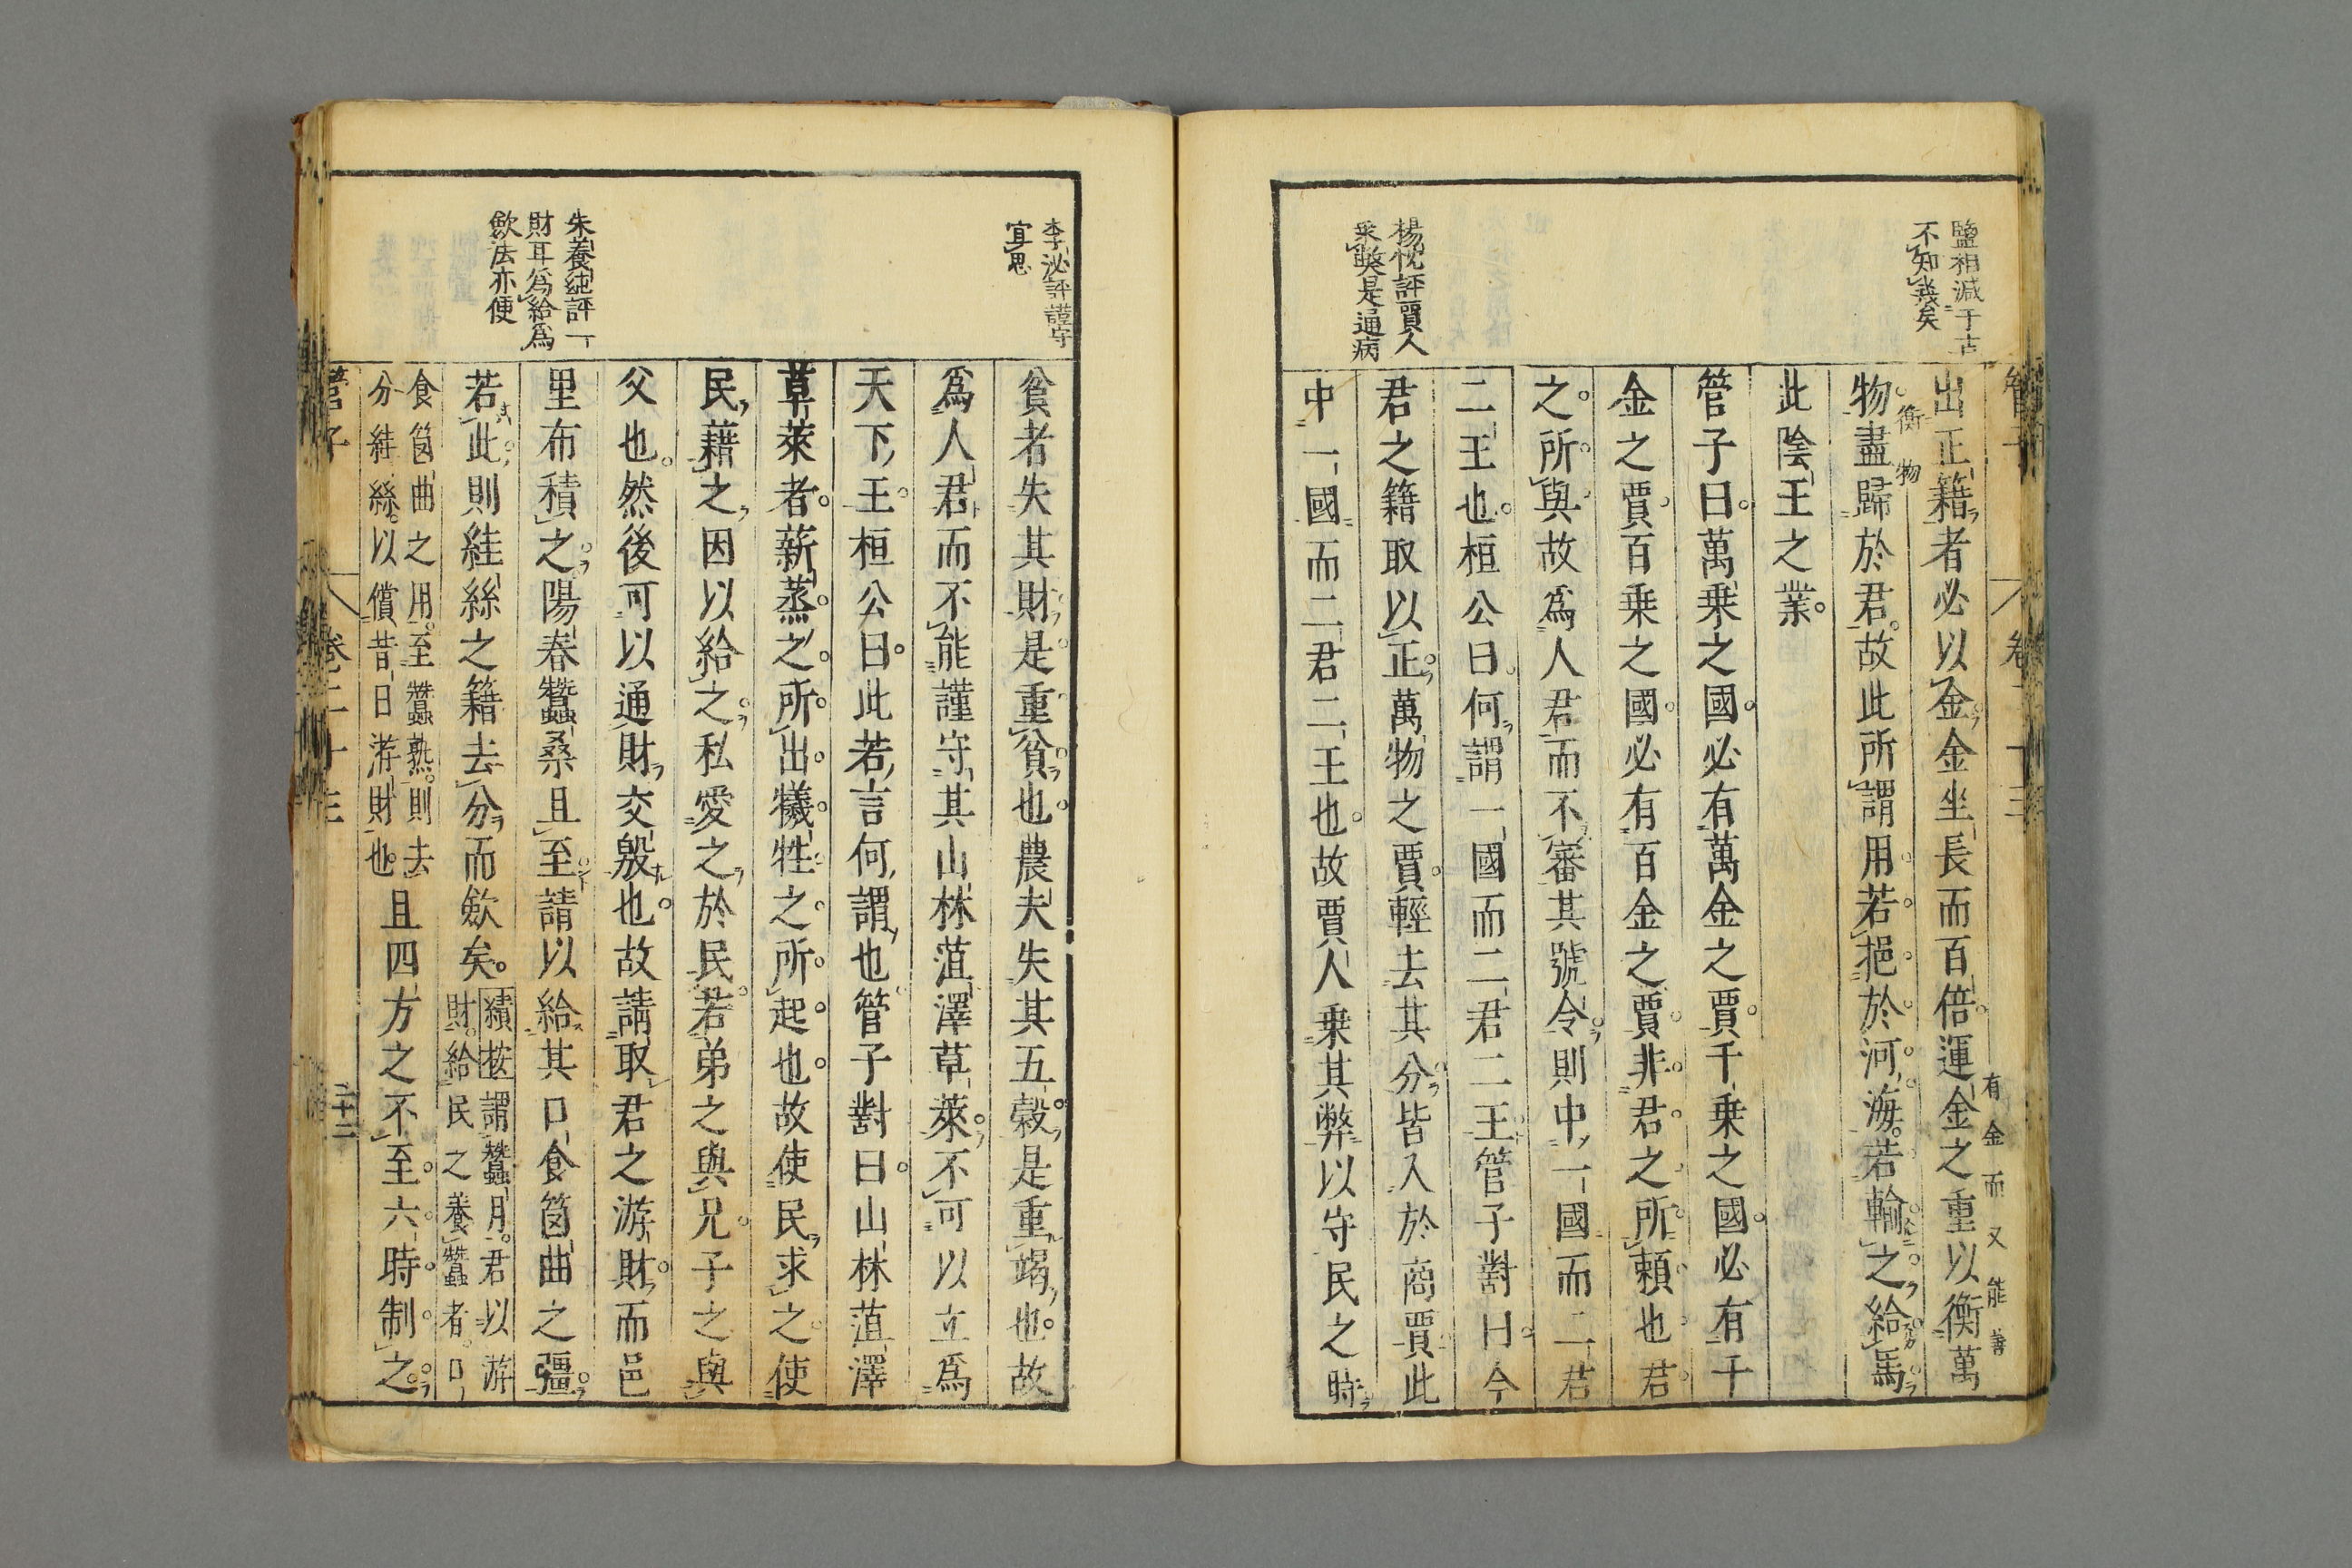 管子
卷二十三
鹽相減于古
不知幾矣
楊忱評賈人
乘獘是通病
出正籍者必以金金坐長而百倍運金之重以衡萬
有金而又能善
衡物
物盡歸於君故此所謂用若挹於河海若輸之給馬
此陰王之業
管子曰萬乗之國必有萬金之賈千乗之國必有千
金之賈百乗之國必有百金之賈非君之所頼也君
之所與故爲人君而不審其號令則中一國而二君
二王也桓公曰何謂一國而二君二王管子對曰今
君之籍取以正萬物之賈輕去其分皆入於商賈此
中一國而二君二王也故賈人乗其弊以守民之時
李泌評謹守
宜思
朱養純評一
財耳爲給爲
歛法亦便
貧者失其財是重貧也農夫失其五穀是重竭也故
爲人君而不能謹守其山林菹澤草萊不可以立爲
天下王桓公曰此若言何謂也管子對曰山林菹澤
草萊者薪蒸之所出犧牲之所起也故使民求之使
民藉之因以給之私愛之於民若弟之與兄子之與
父也然後可以通財交殷也故請取君之游財而邑
里布積之陽春蠶桑且至請以給其口食筥曲之彊
若此則絓絲之籍去分而歛矣
績按謂蠶月君以游
財給民之養蠶者口
食筥曲之用至蠶熟則去
分絓絲以償昔日游財也
且四方之不至六時制之
管子
卷二十三
二十二